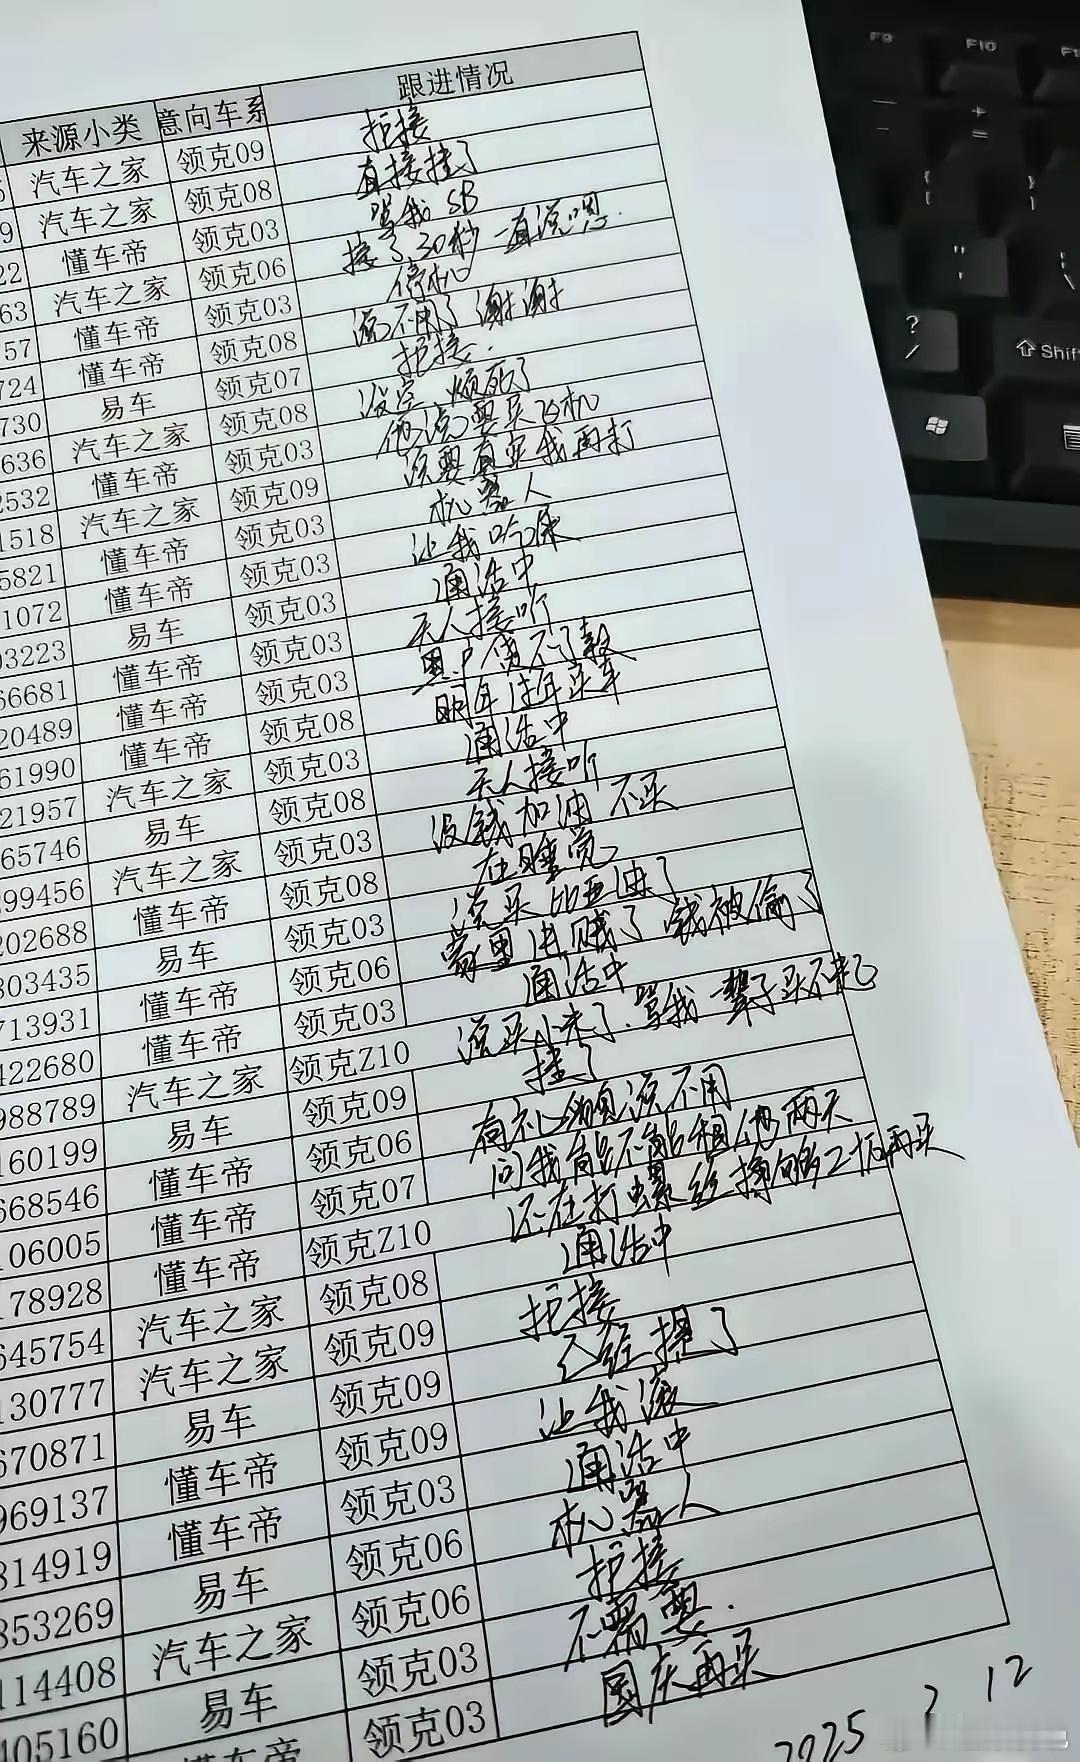 来源小类 意向车系 跟进情况
汽车之家 领克09 拒接
9 汽车之家 领克08 直接挂了
22 懂车帝 领克03 骂我SB
63 汽车之家 领克06 接了30秒一直说嗯.
757 懂车帝 领克03 停机
724 懂车帝 领克08 说不用了谢谢
730 易车 领克07 拒接.
636 汽车之家 领克08 没空 烦死了
2532 懂车帝 领克03 他说要买飞机
1518 汽车之家 领克09 说要有买我再打
5821 懂车帝 领克03 机器人
1072 懂车帝 领克03 让我吃屎
03223 易车 领克03 通话中
66681 懂车帝 领克03 无人接听
20489 懂车帝 领克03 黑户贷不了款
61990 懂车帝 领克08 明年过年买车
21957 汽车之家 领克03 通话中
65746 易车 领克08 无人接听
399456 汽车之家 领克03 没钱加油 不买
202688 懂车帝 领克08 在睡觉
803435 易车 领克03 说买比亚迪了
713931 懂车帝 领克06 家里进贼了 钱被偷了
422680 懂车帝 领克03 通话中
988789 汽车之家 领克Z10 说买小米了.骂我一辈子买不起
160199 易车 领克09 挂了
668546 懂车帝 领克06 有礼貌说不用
106005 懂车帝 领克07 问我能不能租他两天
178928 懂车帝 领克Z10 还在打螺丝 攒够 再买
645754 汽车之家 领克08 通话中
130777 汽车之家 领克09 拒接
670871 易车 领克09 已经提了
969137 懂车帝 领克09 让我滚
814919 懂车帝 领克03 通话中
853269 易车 领克06 机器人
114408 汽车之家 领克06 拒接
405160 易车 领克03 不需要.
懂车帝 领克03 国庆再买
2025 7 12
F9
F10
Shift